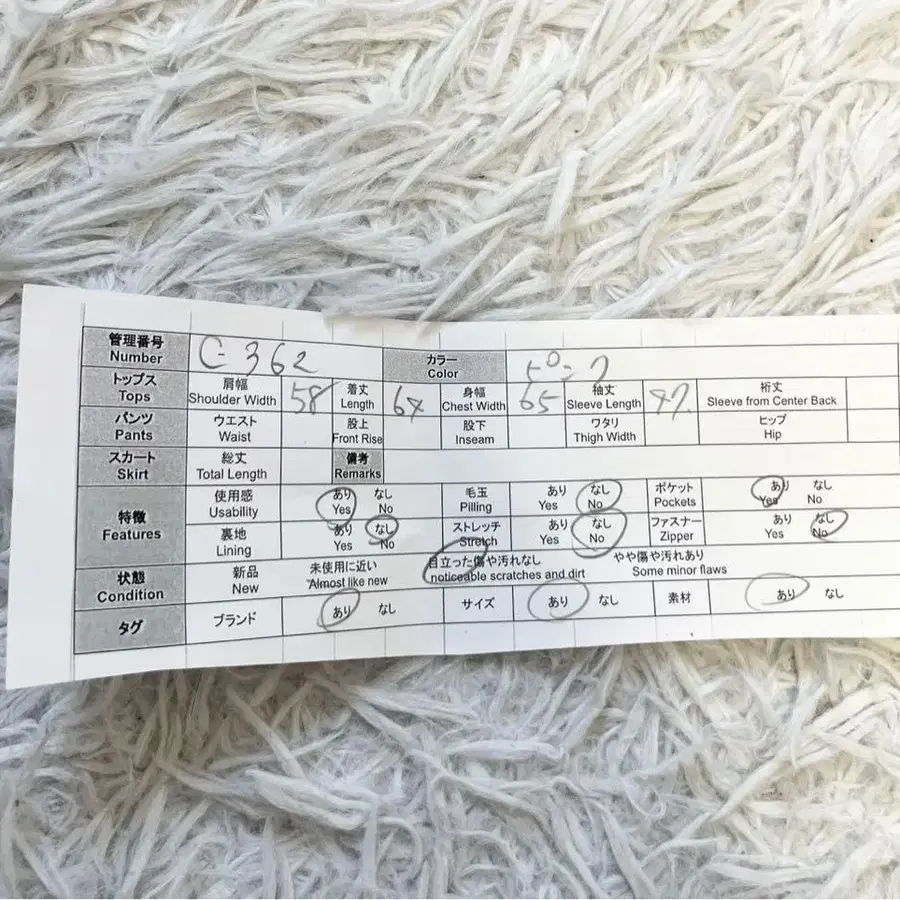 管理番号 Number C-362 カラー Color
トップス Tops 肩幅 Shoulder Width 58 着丈 Length 64 身幅 Chest Width 65 袖丈 Sleeve Length 47. 裄丈 Sleeve from Center Back
パンツ Pants ウエスト Waist 股上 Front Rise 股下 Inseam ワタリ Thigh Width ヒップ Hip
スカート Skirt 総丈 Total Length 備考 Remarks
特徴 Features 使用感 Usability あり Yes なし No 毛玉 Pilling あり Yes なし No ポケット Pockets あり Yes なし No
裏地 Lining あり Yes なし No ストレッチ Stretch あり Yes なし No ファスナー Zipper あり Yes なし No
状態 Condition 新品 New 未使用に近い Almost like new 目立った傷や汚れなし noticeable scratches and dirt やや傷や汚れあり Some minor flaws
タグ ブランド あり なし サイズ あり なし 素材 あり なし